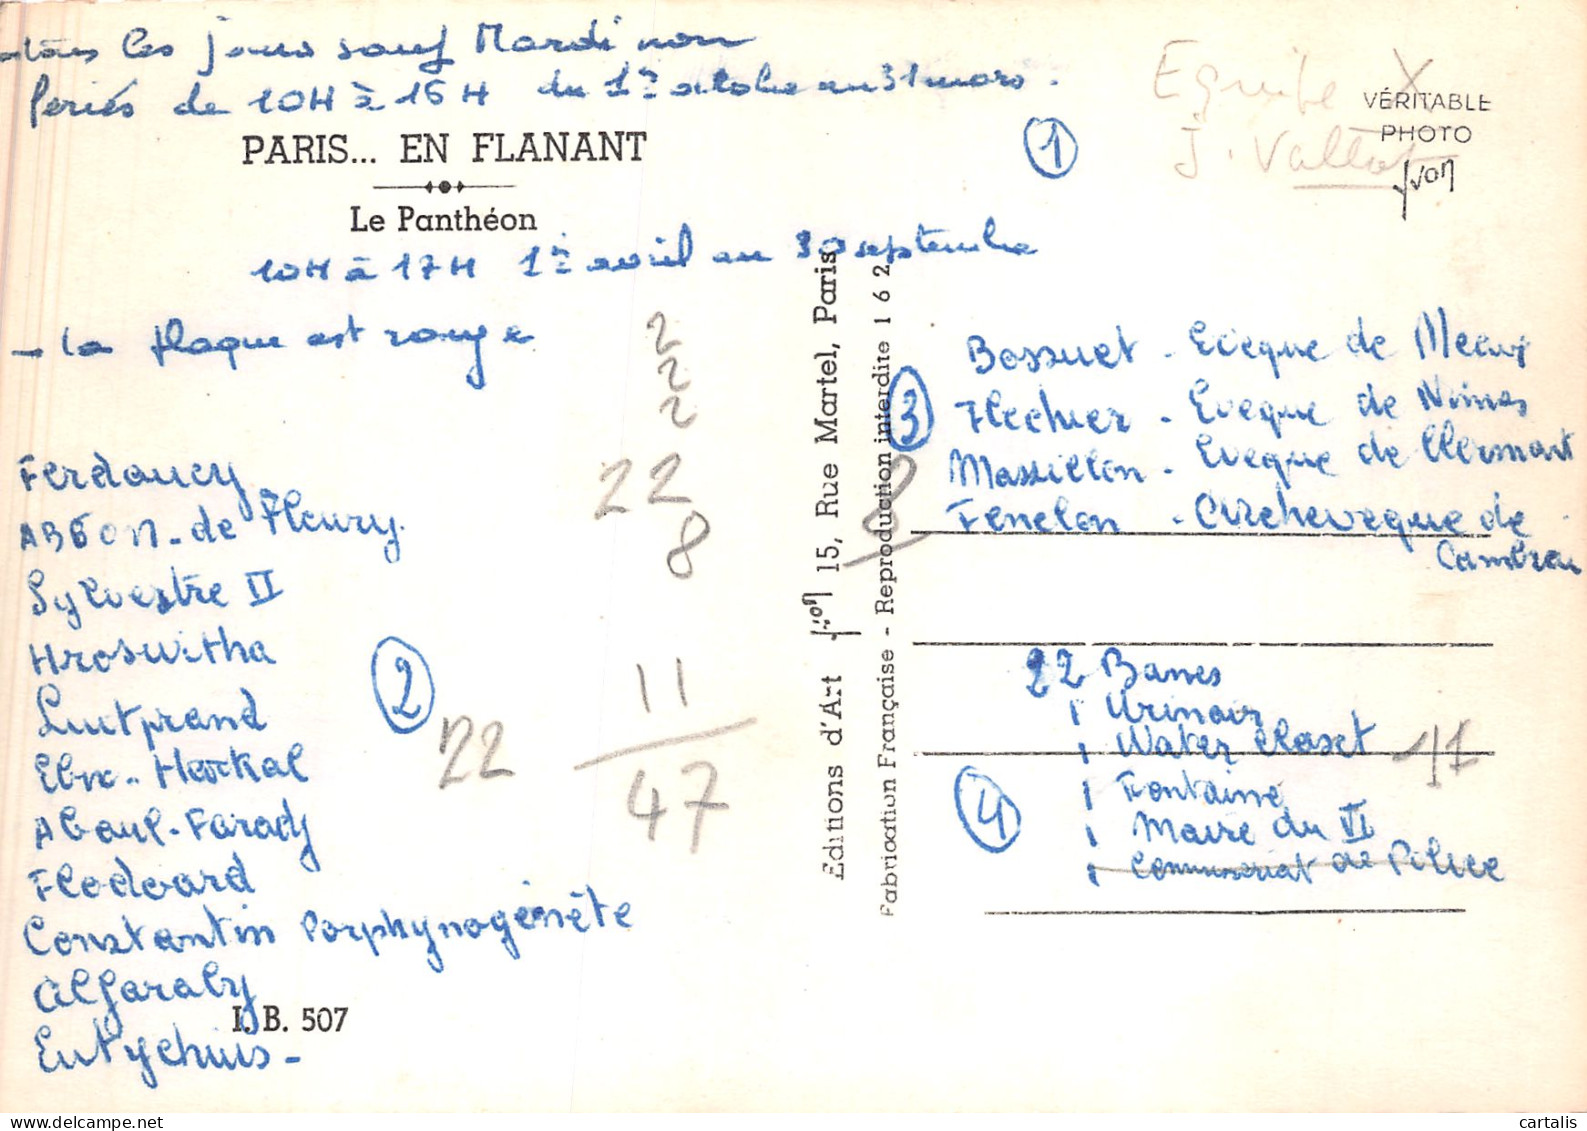 les jours sauf Mardi non
feriés de 10H à 16H du 1er octobre au 31 mars.
PARIS... EN FLANANT
Le Panthéon
10H à 17H 1er avril au 30 septembre
- la plaque est rouge
Equipe X
J. Vallot
VÉRITABLE
PHOTO
yvon
1
2
2
2
22
8
11
47
22
2
Ferdoucy
ABBON - de Fleury.
Sylvestre II
Hroswitha
Luitprand
Ebn - Haokal
Aboul - Farady
Flodoard
Constantin Porphynogénète
Alfaraby
Eutychuis -
I. B. 507
Editions d'Art yvon 15, Rue Martel, Paris
Fabrication Française - Reproduction interdite 162
3
8
Bossuet - Eveque de Meaux
Flechier - Eveque de Nimes
Massillon - Eveque de Clermont
Fenelon - Archeveque de
Cambrai
4
22 Bancs
1 Urinoir
1 Water Closet
11
1 Fontaine
1 Maire du VI
1 Commisseriat de Police
cartalis